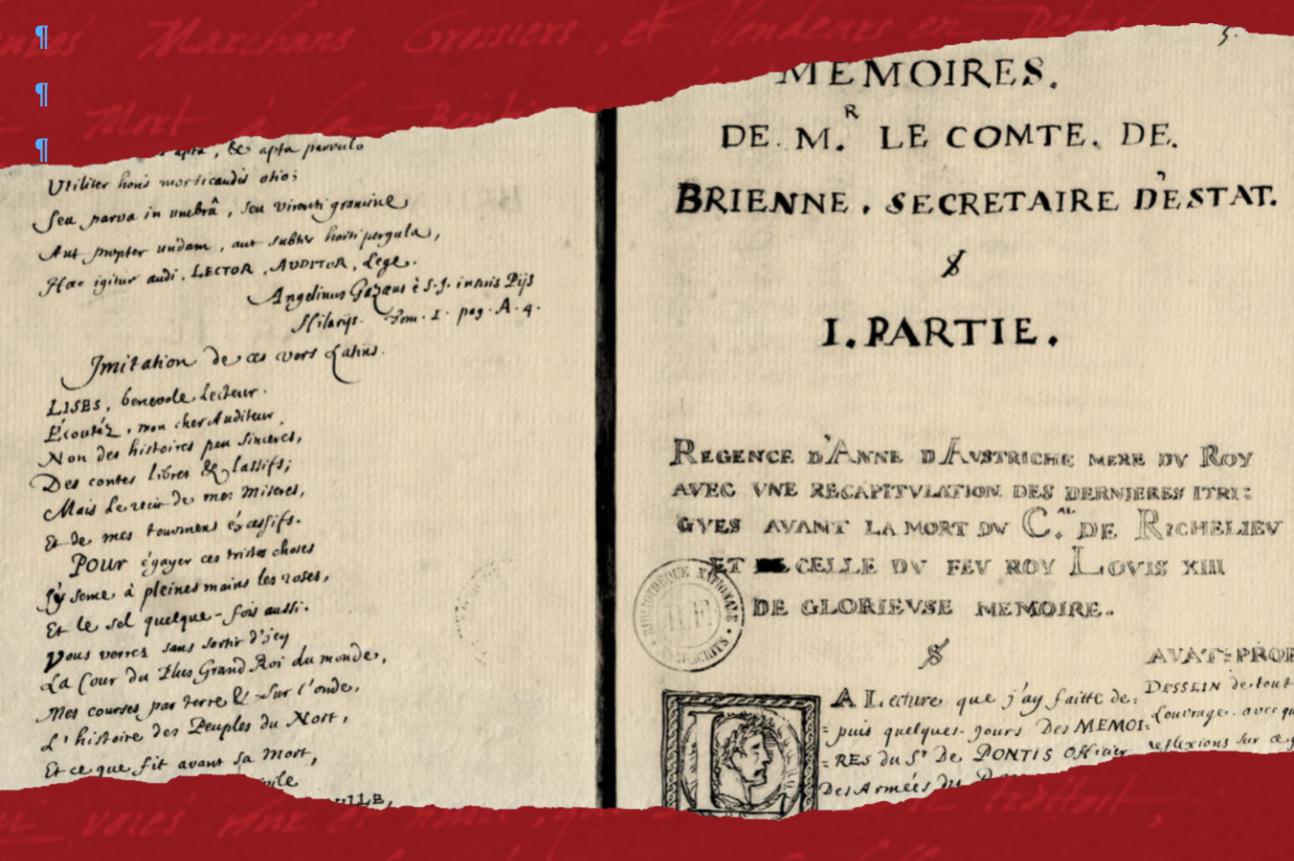 ¶
¶
¶
Marchans Grossiers, et Vendeurs en Detail
Mort à la
apta, & apta parvulo
Utiliter horis morticandis otio;
Seu parva in umbrâ, seu virenti gramine
Aut propter undam, aut subter horti pergula,
Hæc igitur audi, LECTOR, AUDITOR, Lege.
Angelinus Gazæus è S.J. in suis Pijs
Hilarijs. Tom. I. pag. A. 4.
Imitation de ces vers Latins.
LISES, benevole Lecteur.
Écoutéz, mon cher Auditeur,
Non des histoires peu sinceres,
Des contes libres & lassifs;
Mais Le recit de mes miseres,
Et de mes tourmens écassifs.
Pour égayer ces tristes choses
J'y seme à pleines mains les roses,
Et le sel quelque-fois aussi.
Vous verrez sans sortir d'icy
La Cour du Plus Grand Roi du monde,
Mes courses par terre & sur l'onde,
L'histoire des Peuples du Nort,
Et ce que fit avant sa mort,
5.
MEMOIRES.
DE M.R LE COMTE. DE.
BRIENNE. SECRETAIRE D'ESTAT.
I. PARTIE.
REGENCE D'ANNE D'AVSTRICHE MERE DV ROY
AVEC VNE RECAPITVLATION DES DERNIERES ITRI=
GVES AVANT LA MORT DV C.AL DE RICHELIEV
ET CELLE DV FEV ROY LOVIS XIII
DE GLORIEVSE MEMOIRE.
BIBLIOTHEQUE NATIONALE
AVAT=PROP
DESSEIN de tout
Louvrage. avec
reflexions sur
LA Lecture que j'ay faitte de=
=puis quelques jours Des MEMOI=
=RES du Sr. De PONTIS Officier
Des Armées du